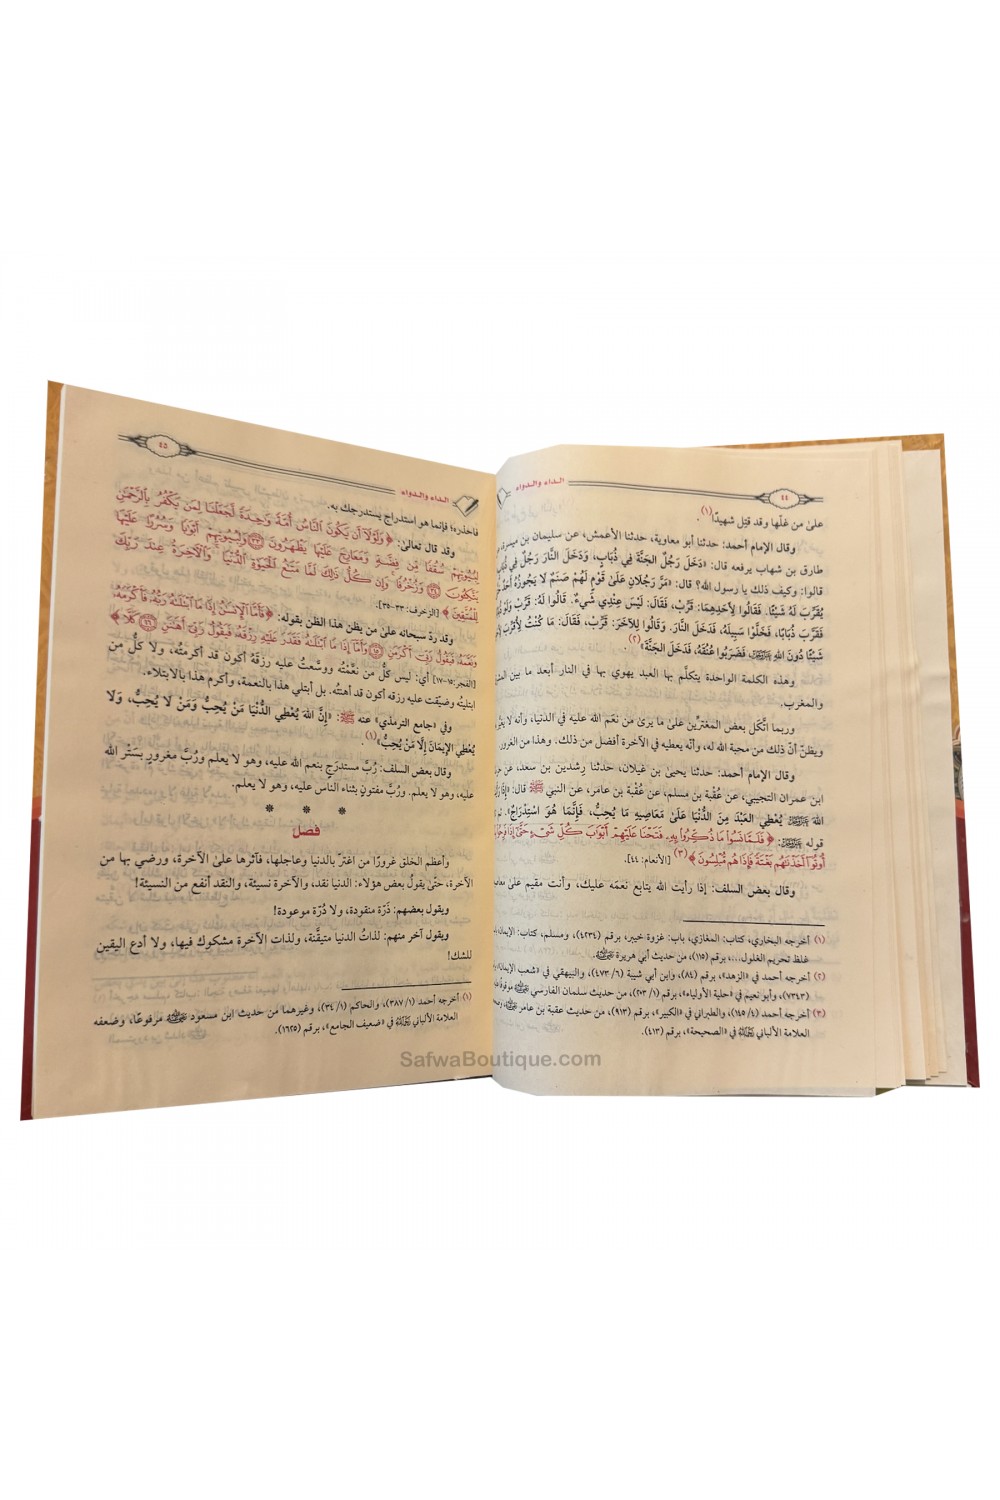 ٤٤
الداء والدواء
علىٰ من غلّها وقد قتِل شهيدًا(١).
وقال الإمام أحمد: حدثنا أبو معاوية، حدثنا الأعمش، عن سليمان بن ميسرة
طارق بن شهاب يرفعه قال: «دَخَلَ رَجُلٌ الجَنَّةَ فِي ذُبَابٍ، وَدَخَلَ النَّارَ رَجُلٌ فِي
قالوا: وكيف ذلك يا رسول الله؟ قال: «مَرَّ رَجُلَانِ عَلَىٰ قَوْمٍ لَهُمْ صَنَمٌ لَا يَجُوزُهُ أَحَدٌ
يُقَرِّبَ لَهُ شَيْئًا. فَقَالُوا لِأَحَدِهِمَا: قَرِّبْ، فَقَالَ: لَيْسَ عِنْدِي شَيْءٌ. قَالُوا لَهُ: قَرِّبْ وَلَوْ
فَقَرَّبَ ذُبَابًا، فَخَلَّوْا سَبِيلَهُ، فَدَخَلَ النَّارَ. وَقَالُوا لِلآخَرِ: قَرِّبْ، فَقَالَ: مَا كُنْتُ لِأُقَرِّبَ
شَيْئًا دُونَ اللهِ عَزَّ وَجَلَّ، فَضَرَبُوا عُنُقَهُ، فَدَخَلَ الجَنَّةَ»(٢).
وهذه الكلمة الواحدة يتكلَّم بها العبد يهوي بها في النار أبعد ما بين
والمغرب.
وربما اتَّكل بعض المغترِّين علىٰ ما يرىٰ من نعَم الله عليه في الدنيا، وأنه لا
ويظنّ أنّ ذلك من محبة الله له، وأنّه يعطيه في الآخرة أفضل من ذلك. وهذا من الغرور.
وقال الإمام أحمد: حدثنا يحيىٰ بن غيلان، حدثنا رِشدين بن سعد، عن
ابن عمران التجيبي، عن عُقْبة بن مسلم، عن عُقْبة بن عامر، عن النبي ﷺ قال: «إِذَا
اللهَ عَزَّ وَجَلَّ يُعْطِي العَبْدَ مِنَ الدُّنْيَا عَلَىٰ مَعَاصِيهِ مَا يُحِبُّ، فَإِنَّمَا هُوَ اسْتِدْرَاجٌ». ثم
قوله عَزَّ وَجَلَّ: ﴿فَلَمَّا نَسُوا۟ مَا ذُكِّرُوا۟ بِهِۦ فَتَحْنَا عَلَيْهِمْ أَبْوَٰبَ كُلِّ شَىْءٍ حَتَّىٰٓ إِذَا فَرِحُوا۟
أُوتُوٓا۟ أَخَذْنَٰهُم بَغْتَةً فَإِذَا هُم مُّبْلِسُونَ﴾(٣) [الأنعام: ٤٤].
وقال بعض السلف: إذا رأيت الله يتابع نعمَه عليك، وأنت مقيم علىٰ
(١) أخرجه البخاري، كتاب: المغازي، باب: غزوة خيبر، برقم (٤٢٣٤)، ومسلم، كتاب: الإيمان،
غلظ تحريم الغلول...، برقم (١١٥)، من حديث أبي هريرة رضي الله عنه.
(٢) أخرجه أحمد في «الزهد»، برقم (٨٤)، وابن أبي شيبة (٦/ ٤٧٣)، والبيهقي في «شعب الإيمان»،
(٧٣٤٣)، وأبو نعيم في «حلية الأولياء»، برقم (١/ ٢٠٣)، من حديث سلمان الفارسي رضي الله عنه
(٣) أخرجه أحمد (٤/ ١٤٥)، والطبراني في «الكبير»، برقم (٩١٣)، من حديث عقبة بن عامر رضي الله عنه،
العلامة الألباني رحمه الله في «الصحيحة»، برقم (٤١٣).
الداء والدواء
٤٥
فاحذره؛ فإنما هو استدراج يستدرجك به.
وقد قال تعالىٰ: ﴿وَلَوْلَآ أَن يَكُونَ ٱلنَّاسُ أُمَّةً وَٰحِدَةً لَّجَعَلْنَا لِمَن يَكْفُرُ بِٱلرَّحْمَٰنِ
لِبُيُوتِهِمْ سُقُفًا مِّن فِضَّةٍ وَمَعَارِجَ عَلَيْهَا يَظْهَرُونَ ۝٣٣ وَلِبُيُوتِهِمْ أَبْوَٰبًا وَسُرُرًا عَلَيْهَا
يَتَّكِـُٔونَ ۝٣٤ وَزُخْرُفًا وَإِن كُلُّ ذَٰلِكَ لَمَّا مَتَٰعُ ٱلْحَيَوٰةِ ٱلدُّنْيَا وَٱلْـَٔاخِرَةُ عِندَ رَبِّكَ
لِلْمُتَّقِينَ﴾ [الزخرف: ٣٣-٣٥].
وقد ردّ سبحانه علىٰ من يظن هذا الظن بقوله: ﴿فَأَمَّا ٱلْإِنسَٰنُ إِذَا مَا ٱبْتَلَىٰهُ رَبُّهُۥ فَأَكْرَمَهُۥ
وَنَعَّمَهُۥ فَيَقُولُ رَبِّىٓ أَكْرَمَنِ ۝١٥ وَأَمَّآ إِذَا مَا ٱبْتَلَىٰهُ فَقَدَرَ عَلَيْهِ رِزْقَهُۥ فَيَقُولُ رَبِّىٓ أَهَٰنَنِ ۝١٦ كَلَّا﴾
[الفجر:١٥-١٧] أي: ليس كلُّ من نعَّمْتُه ووسَّعتُ عليه رزقَهُ أكون قد أكرمتُه، ولا كلُّ من
ابتليتُه وضيّقت عليه رزقه أكون قد أهنتُه. بل أبتلي هذا بالنعمة، وأكرم هذا بالابتلاء.
وفي «جامع الترمذي» عنه ﷺ: «إِنَّ اللهَ يُعْطِي الدُّنْيَا مَنْ يُحِبُّ وَمَنْ لَا يُحِبُّ، وَلَا
يُعْطِي الإِيمَانَ إِلَّا مَنْ يُحِبُّ»(١).
وقال بعض السلف: رُبَّ مستدرَجٍ بنعم الله عليه، وهو لا يعلم ورُبَّ مغرورٍ بسَتْر الله
عليه، وهو لا يعلم. ورُبَّ مفتونٍ بثناء الناس عليه، وهو لا يعلم.
* * *
فصل
وأعظم الخلق غرورًا من اغترّ بالدنيا وعاجلها، فآثرها علىٰ الآخرة، ورضي بها من
الآخرة، حتّىٰ يقولُ بعض هؤلاء: الدنيا نقد، والآخرة نسيئة، والنقد أنفع من النسيئة!
ويقول بعضهم: ذَرّة منقودة، ولا دُرّة موعودة!
ويقول آخر منهم: لذاتُ الدنيا متيقَّنة، ولذات الآخرة مشكوك فيها، ولا أدع اليقين
للشك!
(١) أخرجه أحمد (١/ ٣٨٧)، والحاكم (١/ ٣٤)، وغيرهما من حديث ابن مسعود رضي الله عنه مرفوعًا، وضعفه
العلامة الألباني رحمه الله في «ضعيف الجامع»، برقم (١٦٢٥).
SafwaBoutique.com